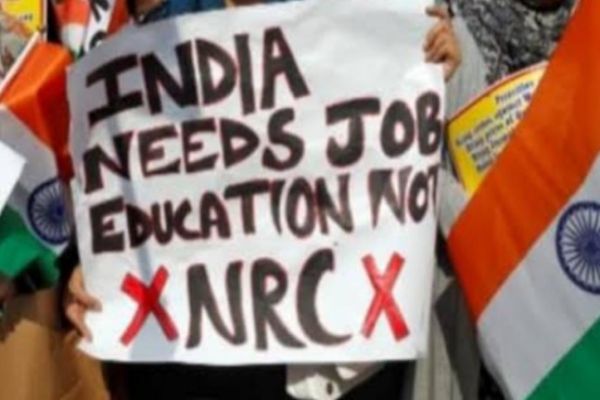 INDIA
NEEDS JOB
EDUCATION NOT
X NRC X